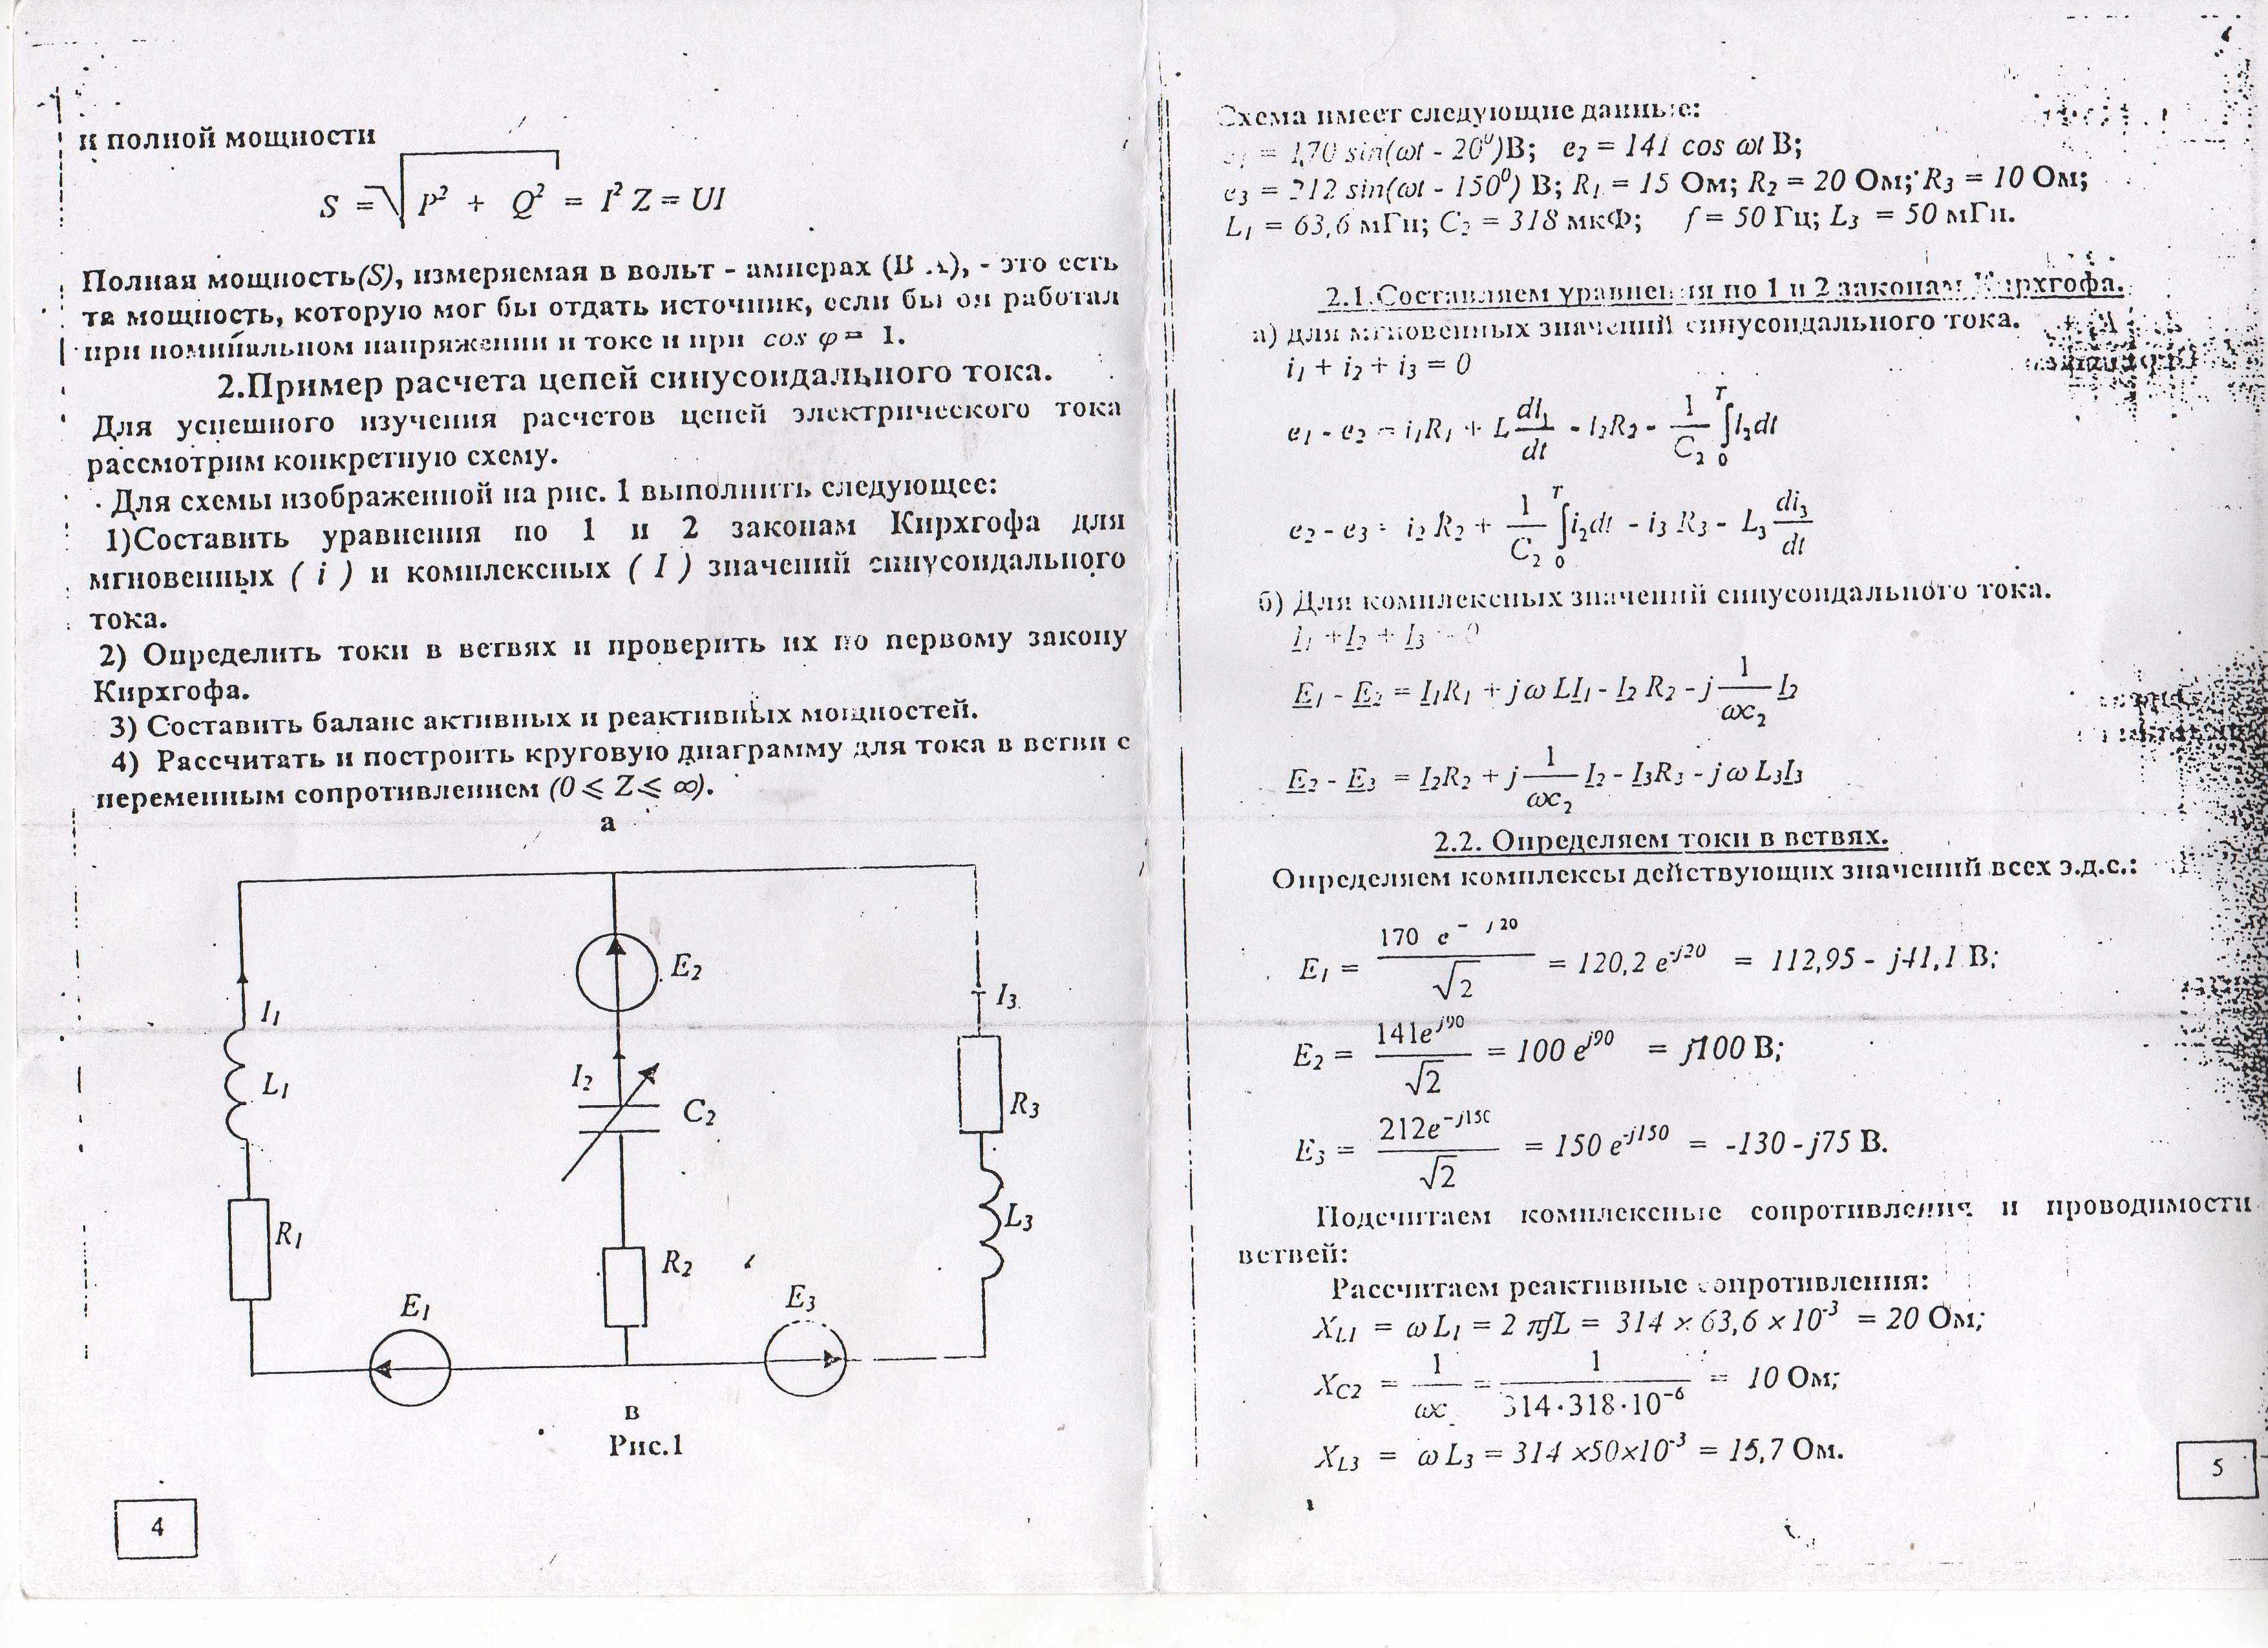 и полной мощности
S = √ P² + Q² = I² Z = UI
Полная мощность(S), измеряемая в вольт - амперах (В А), - это есть
та мощность, которую мог бы отдать источник, если бы он работал
при номинальном напряжении и токе и при cos φ = 1.
2.Пример расчета цепей синусоидального тока.
Для успешного изучения расчетов цепей электрического тока
рассмотрим конкретную схему.
Для схемы изображенной на рис. 1 выполнить следующее:
1)Составить уравнения по 1 и 2 законам Кирхгофа для
мгновенных ( i ) и комплексных ( I ) значений синусоидального
тока.
2) Определить токи в ветвях и проверить их по первому закону
Кирхгофа.
3) Составить баланс активных и реактивных мощностей.
4) Рассчитать и построить круговую диаграмму для тока в ветви с
переменным сопротивлением (0 ⩽ Z ⩽ ∞).
а
E₂
I₁
I₃
L₁
I₂
C₂
R₃
R₁
R₂
L₃
E₁
E₃
в
Рис.1
4
Схема имеет следующие данные:
e₁ = 170 sin(ωt - 20⁰)В; e₂ = 141 cos ωt В;
e₃ = 212 sin(ωt - 150⁰) В; R₁ = 15 Ом; R₂ = 20 Ом; R₃ = 10 Ом;
L₁ = 63,6 мГн; C₂ = 318 мкФ; f = 50 Гц; L₃ = 50 мГн.
2.1.Составляем уравнения по 1 и 2 законам Кирхгофа.
а) для мгновенных значений синусоидального тока.
i₁ + i₂ + i₃ = 0
e₁ - e₂ = i₁R₁ + L dI₁/dt - I₂R₂ - 1/C₂ ∫₀ᵀ I₂dt
e₂ - e₃ = i₂ R₂ + 1/C₂ ∫₀ᵀ i₂dt - i₃ R₃ - L₃ di₃/dt
б) Для комплексных значений синусоидального тока.
I₁ + I₂ + I₃ = 0
E₁ - E₂ = I₁R₁ + jω LI₁ - I₂ R₂ - j 1/ωc₂ I₂
E₂ - E₃ = I₂R₂ + j 1/ωc₂ I₂ - I₃R₃ - jω L₃I₃
2.2. Определяем токи в ветвях.
Определяем комплексы действующих значений всех э.д.с.:
E₁ = 170 e^(- j 20)/√2 = 120,2 e^(-j20) = 112,95 - j41,1 В;
E₂ = 141e^(j90)/√2 = 100 e^(j90) = j100 В;
E₃ = 212e^(-j150)/√2 = 150 e^(-j150) = -130 - j75 В.
Подсчитаем комплексные сопротивления и проводимости
ветвей:
Рассчитаем реактивные сопротивления:
X_L1 = ω L₁ = 2 πfL = 314 × 63,6 × 10⁻³ = 20 Ом;
X_C2 = 1/ωc = 1/314·318·10⁻⁶ = 10 Ом;
X_L3 = ω L₃ = 314 ×50×10⁻³ = 15,7 Ом.
5